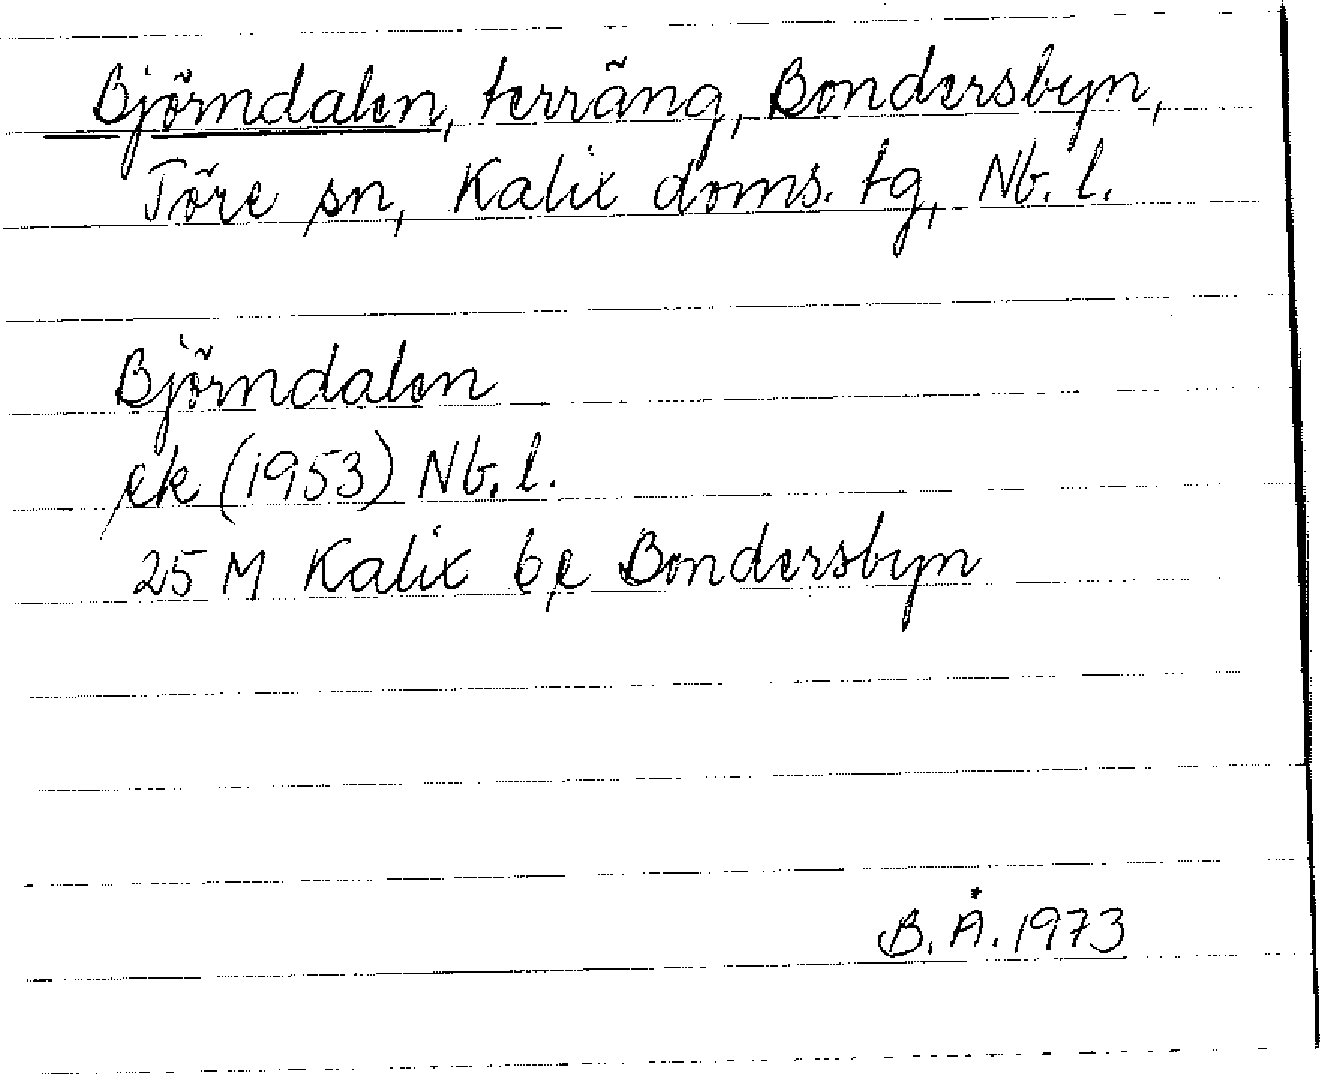 Björndalen, terräng, Bondersbyn,
Töre sn, Kalix doms. tg, Nb. l.
Björndalen
ek (1953) Nb. l.
25 M Kalix 6e Bondersbyn
B. Å. 1973